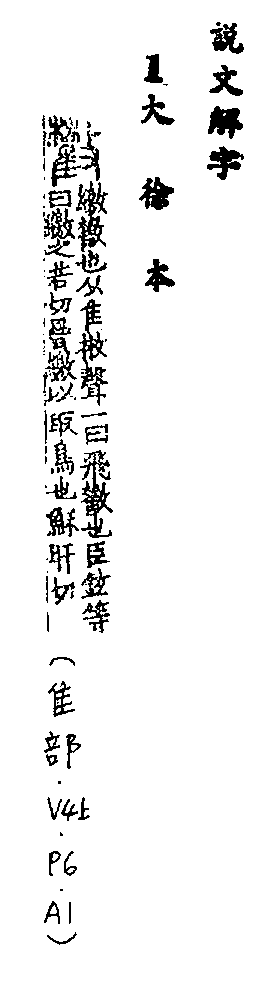 説文解字
大徐本
繳𢿱也从隹㪔聲一曰飛𢿱也臣鉉等
曰繳之若切矰繳以取鳥也穌旰切
(隹部.V4上.P6.A1)